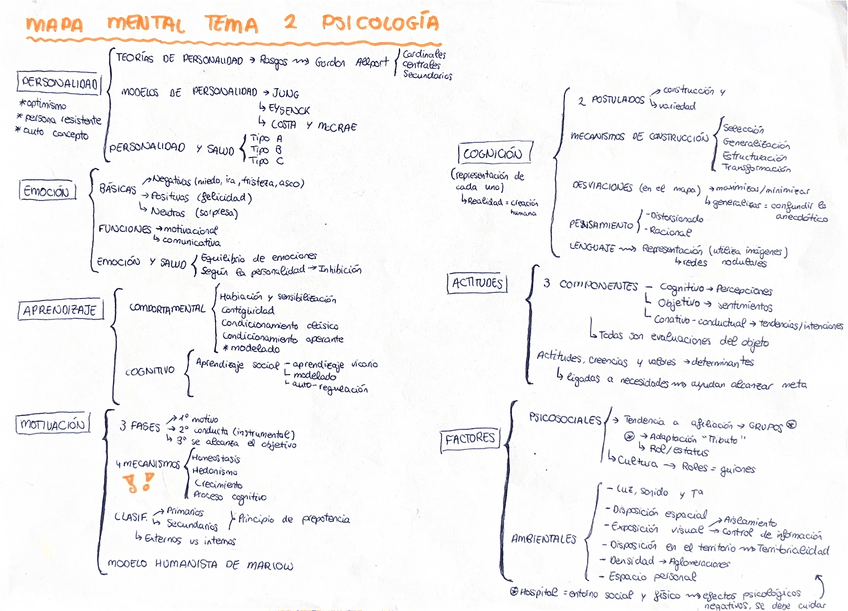 MAPA MENTAL TEMA 2 PSICOLOGÍA
PERSONALIDAD
* optimismo
* persona resistente
* auto concepto
TEORÍAS DE PERSONALIDAD → Rasgos → Gordon Allport
Cardinales
centrales
Secundarios
MODELOS DE PERSONALIDAD → JUNG
↳ EYSENCK
↳ COSTA Y McCRAE
PERSONALIDAD Y SALUD
Tipo A
Tipo B
Tipo C
EMOCIÓN
BÁSICAS
→ Negativas (miedo, ira, tristeza, asco)
→ Positivas (felicidad)
↳ Neutras (sorpresa)
FUNCIONES → motivacional
↳ comunicativa
EMOCIÓN Y SALUD
Equilibrio de emociones
Según la personalidad → Inhibición
APRENDIZAJE
COMPORTAMENTAL
Habiación y sensibilización
Contigüidad
Condicionamiento clásico
Condicionamiento operante
* modelado
COGNITIVO
Aprendizaje social - aprendizaje vicario
↳ modelado
↳ auto-regulación
MOTIVACIÓN
3 FASES
→ 1º motivo
→ 2º conducta (instrumental)
↳ 3º se alcanza el objetivo
4 MECANISMOS
Homeostasis
Hedonismo
Crecimiento
Proceso cognitivo
CLASIF.
→ Primarios
↳ Secundarios
Principio de prepotencia
↳ Externos vs internos
MODELO HUMANISTA DE MARLOW
COGNICIÓN
(representación de
cada uno)
↳ Realidad = creación
humana
2 POSTULADOS
→ construcción y
↳ variedad
MECANISMOS DE CONSTRUCCIÓN
Selección
Generalización
Estructuración
Transformación
DESVIACIONES (en el mapa) → maximizar/minimizar
↳ generalizar = confundir lo
anecdótico
PENSAMIENTO
- Distorsionado
- Racional
LENGUAJE → Representación (utiliza imágenes)
↳ redes nodulares
ACTITUDES
3 COMPONENTES - Cognitivo → Percepciones
Objetivo → sentimientos
Conativo-conductual → tendencias/intenciones
↳ Todas son evaluaciones del objeto
Actitudes, creencias y valores → determinantes
↳ ligadas a necesidades → ayudan alcanzar meta
FACTORES
PSICOSOCIALES
→ Tendencia a afiliación → GRUPOS
→ Adaptación "Tributo"
↳ Rol/estatus
↳ Cultura → Roles = guiones
AMBIENTALES
- Luz, sonido y Tª
- Disposición espacial
- Exposición visual
→ Aislamiento
→ Control de información
- Disposición en el territorio → Territorialidad
- Densidad → Aglomeraciones
- Espacio personal
Hospital = entorno social y físico → efectos psicológicos
negativos, se debe cuidar